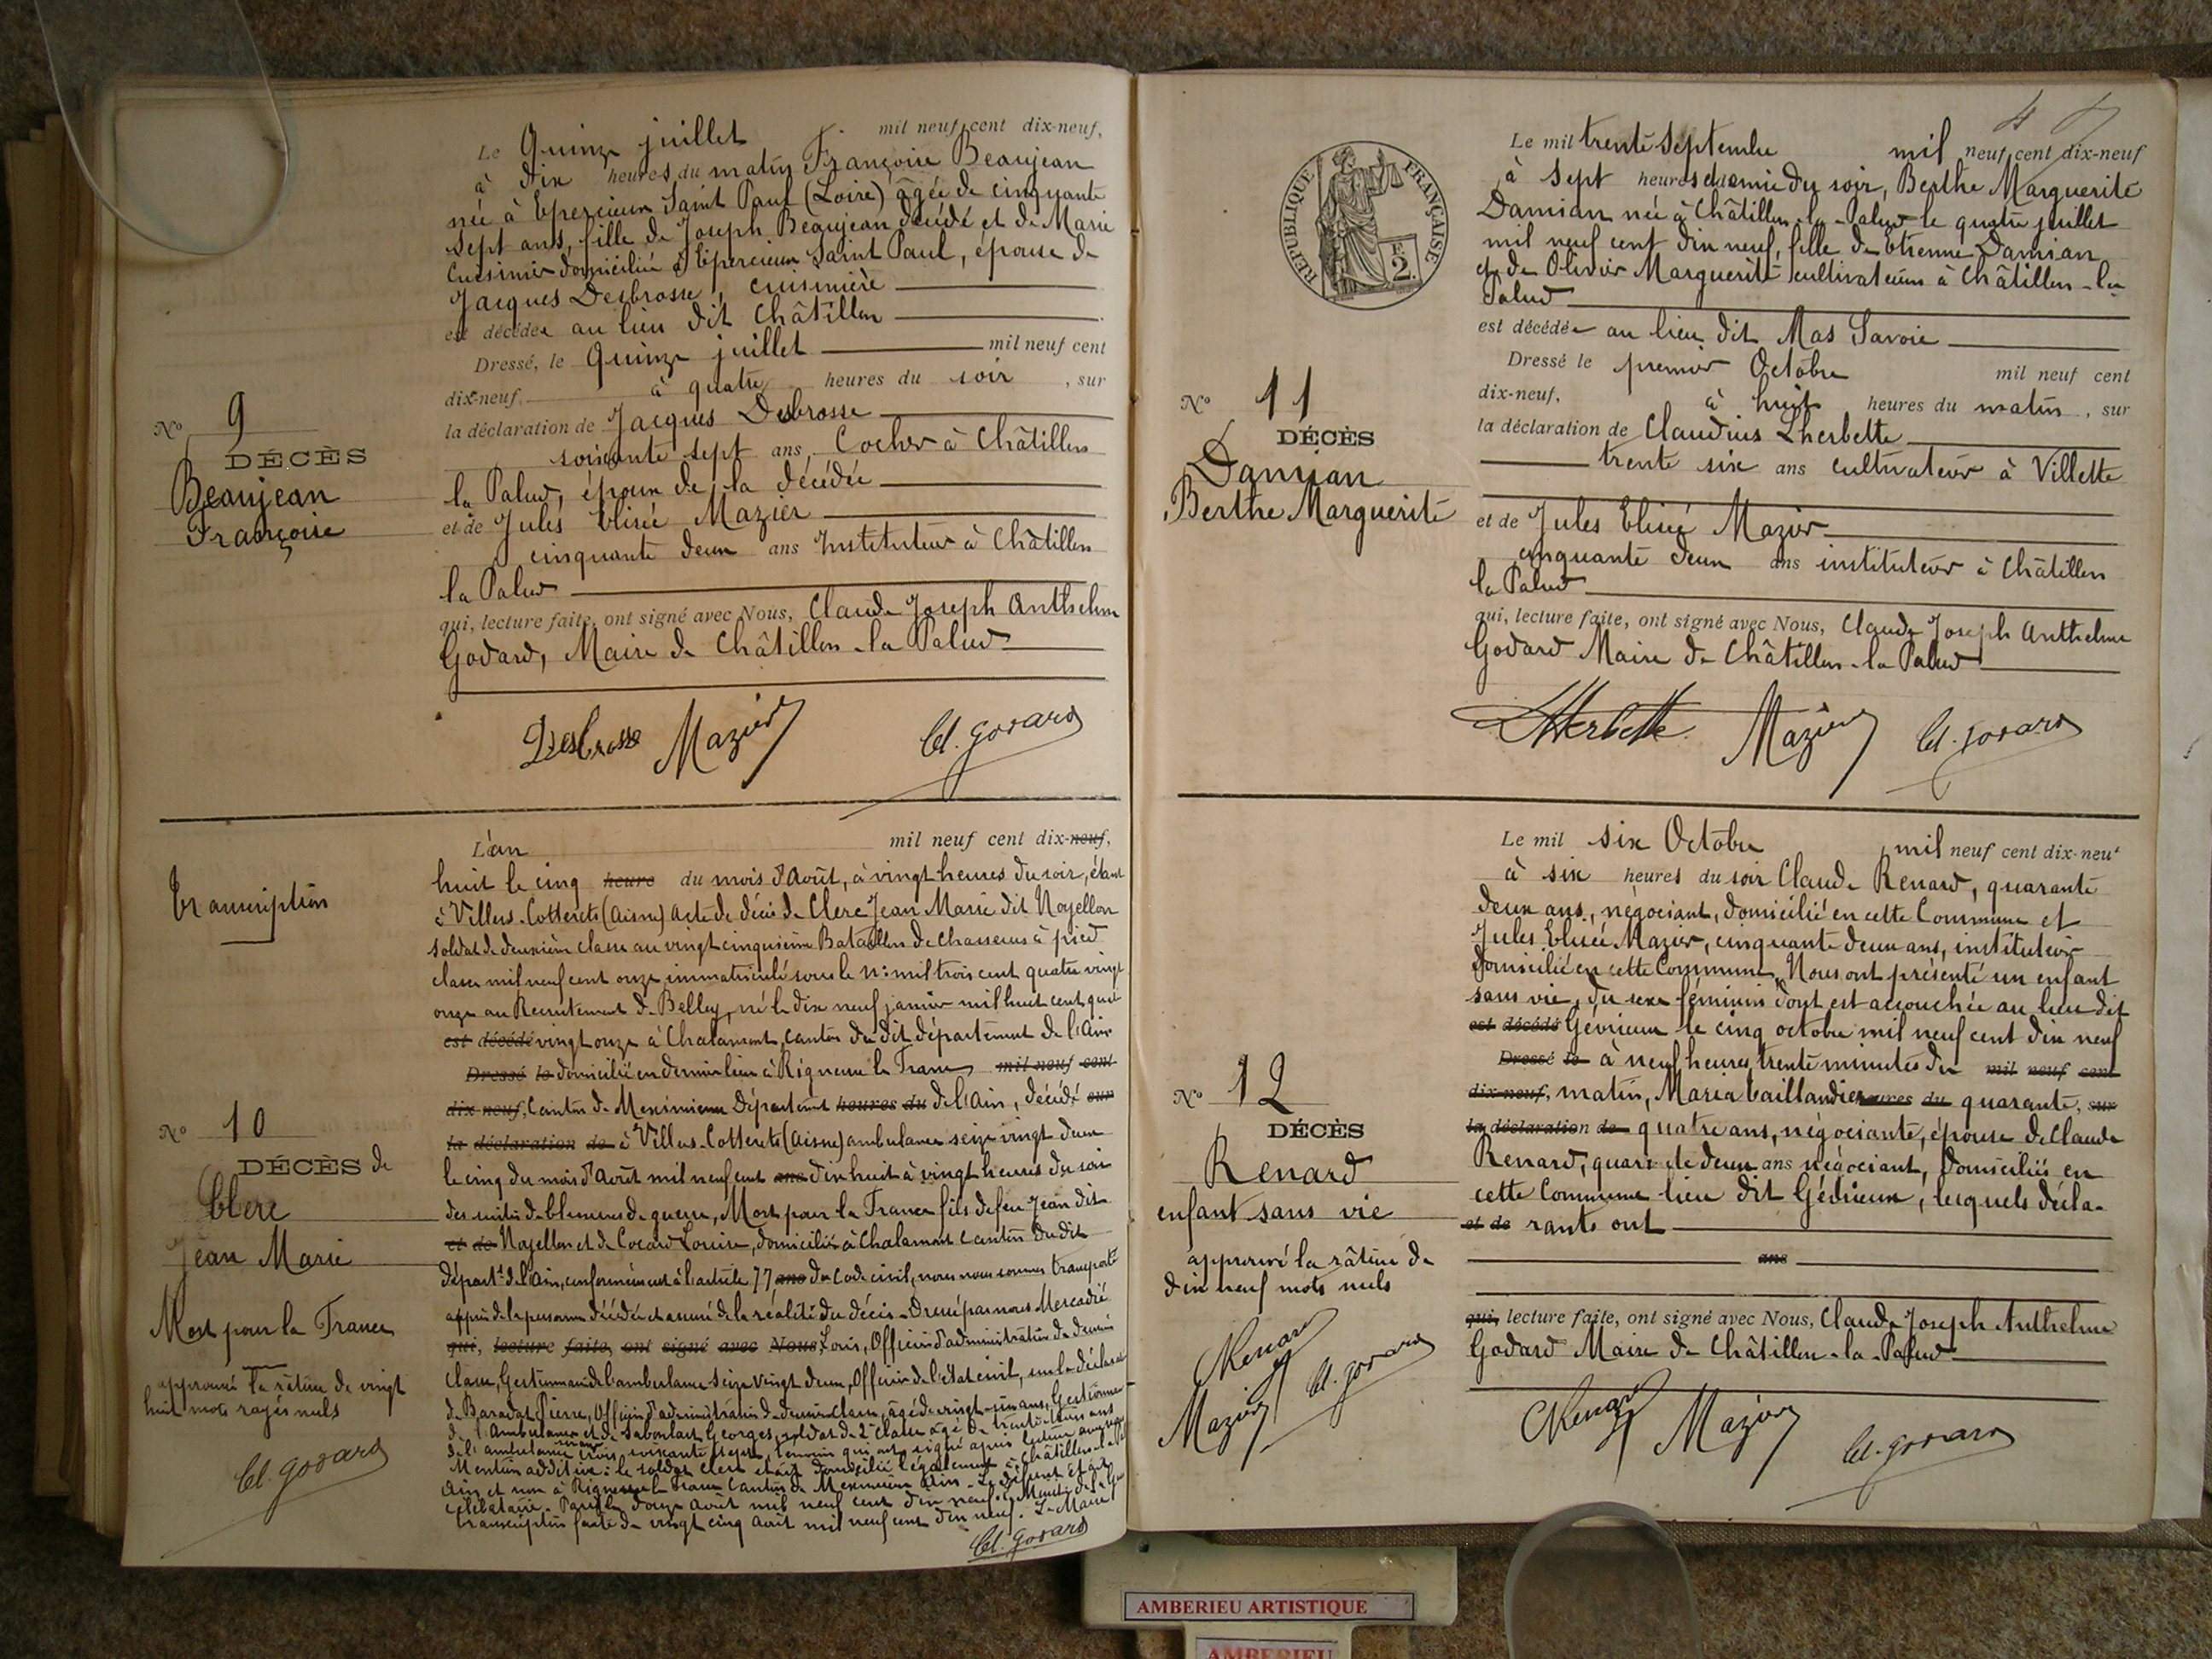 Le Quinze juillet mil neuf cent dix-neuf,
à dix heures du matin Françoise Beaujean
née à Epercieux Saint Paul (Loire) âgée de cinquante
sept ans, fille de Joseph Beaujean décédé et de Marie
domiciliée à Epercieux Saint Paul, épouse de
Jacques Desbrosse, cuisinière
est décédée au lieu dit Châtillon
Dressé, le Quinze juillet mil neuf cent
dix-neuf, à quatre heures du soir, sur
la déclaration de Jacques Desbrosse
soixante sept ans, Cocher à Châtillon
la Palud, époux de la décédée
et de Jules Elisée Mazier
cinquante deux ans Instituteur à Châtillon
la Palud
qui, lecture faite, ont signé avec Nous, Claude Joseph Anthelme
Godard, Maire de Châtillon-la Palud
Nº 9
DÉCÈS
Beaujean
Françoise
Desbrosse Mazier Cl. Godard
L'an mil neuf cent dix-neuf,
huit le cinq heure du mois d'Août, à vingt heures du soir, étant
à Villers-Cotterets (Aisne) Acte de décès de Clerc Jean Marie dit Noyellon
soldat de deuxième classe au vingt cinquième Bataillon de chasseurs à pied
classe mil neuf cent onze immatriculé sous le nº mil trois cent quatre vingt
onze au Recrutement de Belley, né le dix neuf janvier mil huit cent quatre
est décédé vingt onze à Chalamont, canton du dit département de l'Ain
Dressé le domicilié en dernier lieu à Rigneux le Franc mil neuf cent
dix neuf, Canton de Meximieux Département heures du de l'Ain, décédé sur
la déclaration de à Villers-Cotterets (Aisne) ambulance seize vingt deux
le cinq du mois d'Août mil neuf cent ans dix huit à vingt heures du soir
des suites de blessures de guerre, Mort pour la France fils de feu Jean dit
et de Noyellon et de Cocard Louise, domiciliés à Chalamont canton du dit
départt de l'Ain, conformément à l'article 77 ans du Code civil, nous nous sommes transporté
auprès de la personne décédée et assuré de la réalité du décès - Dressé par nous Mercadié
qui, lecture faite, ont signé avec Nous, Louis, Officier d'administration de deuxième
classe, Gestionnaire de l'ambulance seize vingt deux, Officier de l'état civil, sur la déclaration
de Baradat Pierre, Officier d'administration de deuxième classe, âgé de vingt-six ans, Gestionnaire
de l'Ambulance et de Saboulart Georges, soldat de 2e classe âgé de trente trois ans
de l'ambulance trois soixante sept, témoins qui ont signé après lecture avec nous
Mention additive: le soldat Clerc était domicilié légalement à Châtillon-la
Ain et non à Rigneux le Franc Canton de Meximieux Ain - Le défunt était
célibataire. Paris le douze août mil neuf cent dix neuf.
transcription faite le vingt cinq août mil neuf cent dix neuf. Le Maire
Cl. Godard
Transcription
Nº 10
DÉCÈS de
Clerc
Jean Marie
Mort pour la France
approuvé la râture de vingt
huit mots rayés nuls
Cl. Godard
REPUBLIQUE FRANÇAISE
2
Le mil trente Septembre mil neuf cent dix-neuf
à sept heures demie du soir, Berthe Marguerite
Damian née à Châtillon-la-Palud le quatre juillet
mil neuf cent dix neuf, fille de Etienne Damian
et de Olivier Marguerite cultivateurs à Châtillon-la
Palud
est décédée au lieu dit Mas Savoie
Dressé le premier Octobre mil neuf cent
dix-neuf, à huit heures du matin, sur
la déclaration de Claudius Lherbette
trente six ans cultivateur à Villette
et de Jules Elisée Mazier
cinquante deux ans instituteur à Châtillon
la Palud
qui, lecture faite, ont signé avec Nous, Claude Joseph Anthelme
Godard Maire de Châtillon-la Palud
Nº 11
DÉCÈS
Damian
Berthe Marguerite
Lherbette Mazier Cl. Godard
Le mil six Octobre mil neuf cent dix-neuf
à six heures du soir Claude Renard, quarante
deux ans, négociant, domicilié en cette Commune et
Jules Elisée Mazier, cinquante deux ans, instituteur
domicilié en cette Commune, Nous ont présenté un enfant
sans vie, du sexe féminin dont est accouchée au lieu dit
est décédé Gévrieux le cinq octobre mil neuf cent dix neuf
Dressé le à neuf heures trente minutes du mil neuf cent
dix-neuf, matin, Maria Taillandier heures du quarante, sur
la déclaration de quatre ans, négociante, épouse de Claude
Renard, quarante deux ans négociant, domiciliés en
cette Commune lieu dit Gévrieux, lesquels décla-
et de rants ont
ans
qui, lecture faite, ont signé avec Nous, Claude Joseph Anthelme
Godard Maire de Châtillon-la-Palud
Nº 12
DÉCÈS
Renard
enfant sans vie
approuvé la râture de
dix neuf mots nuls
Renard
Mazier Cl. Godard
CRenard Mazier Cl. Godard
AMBERIEU ARTISTIQUE
AMBERIEU